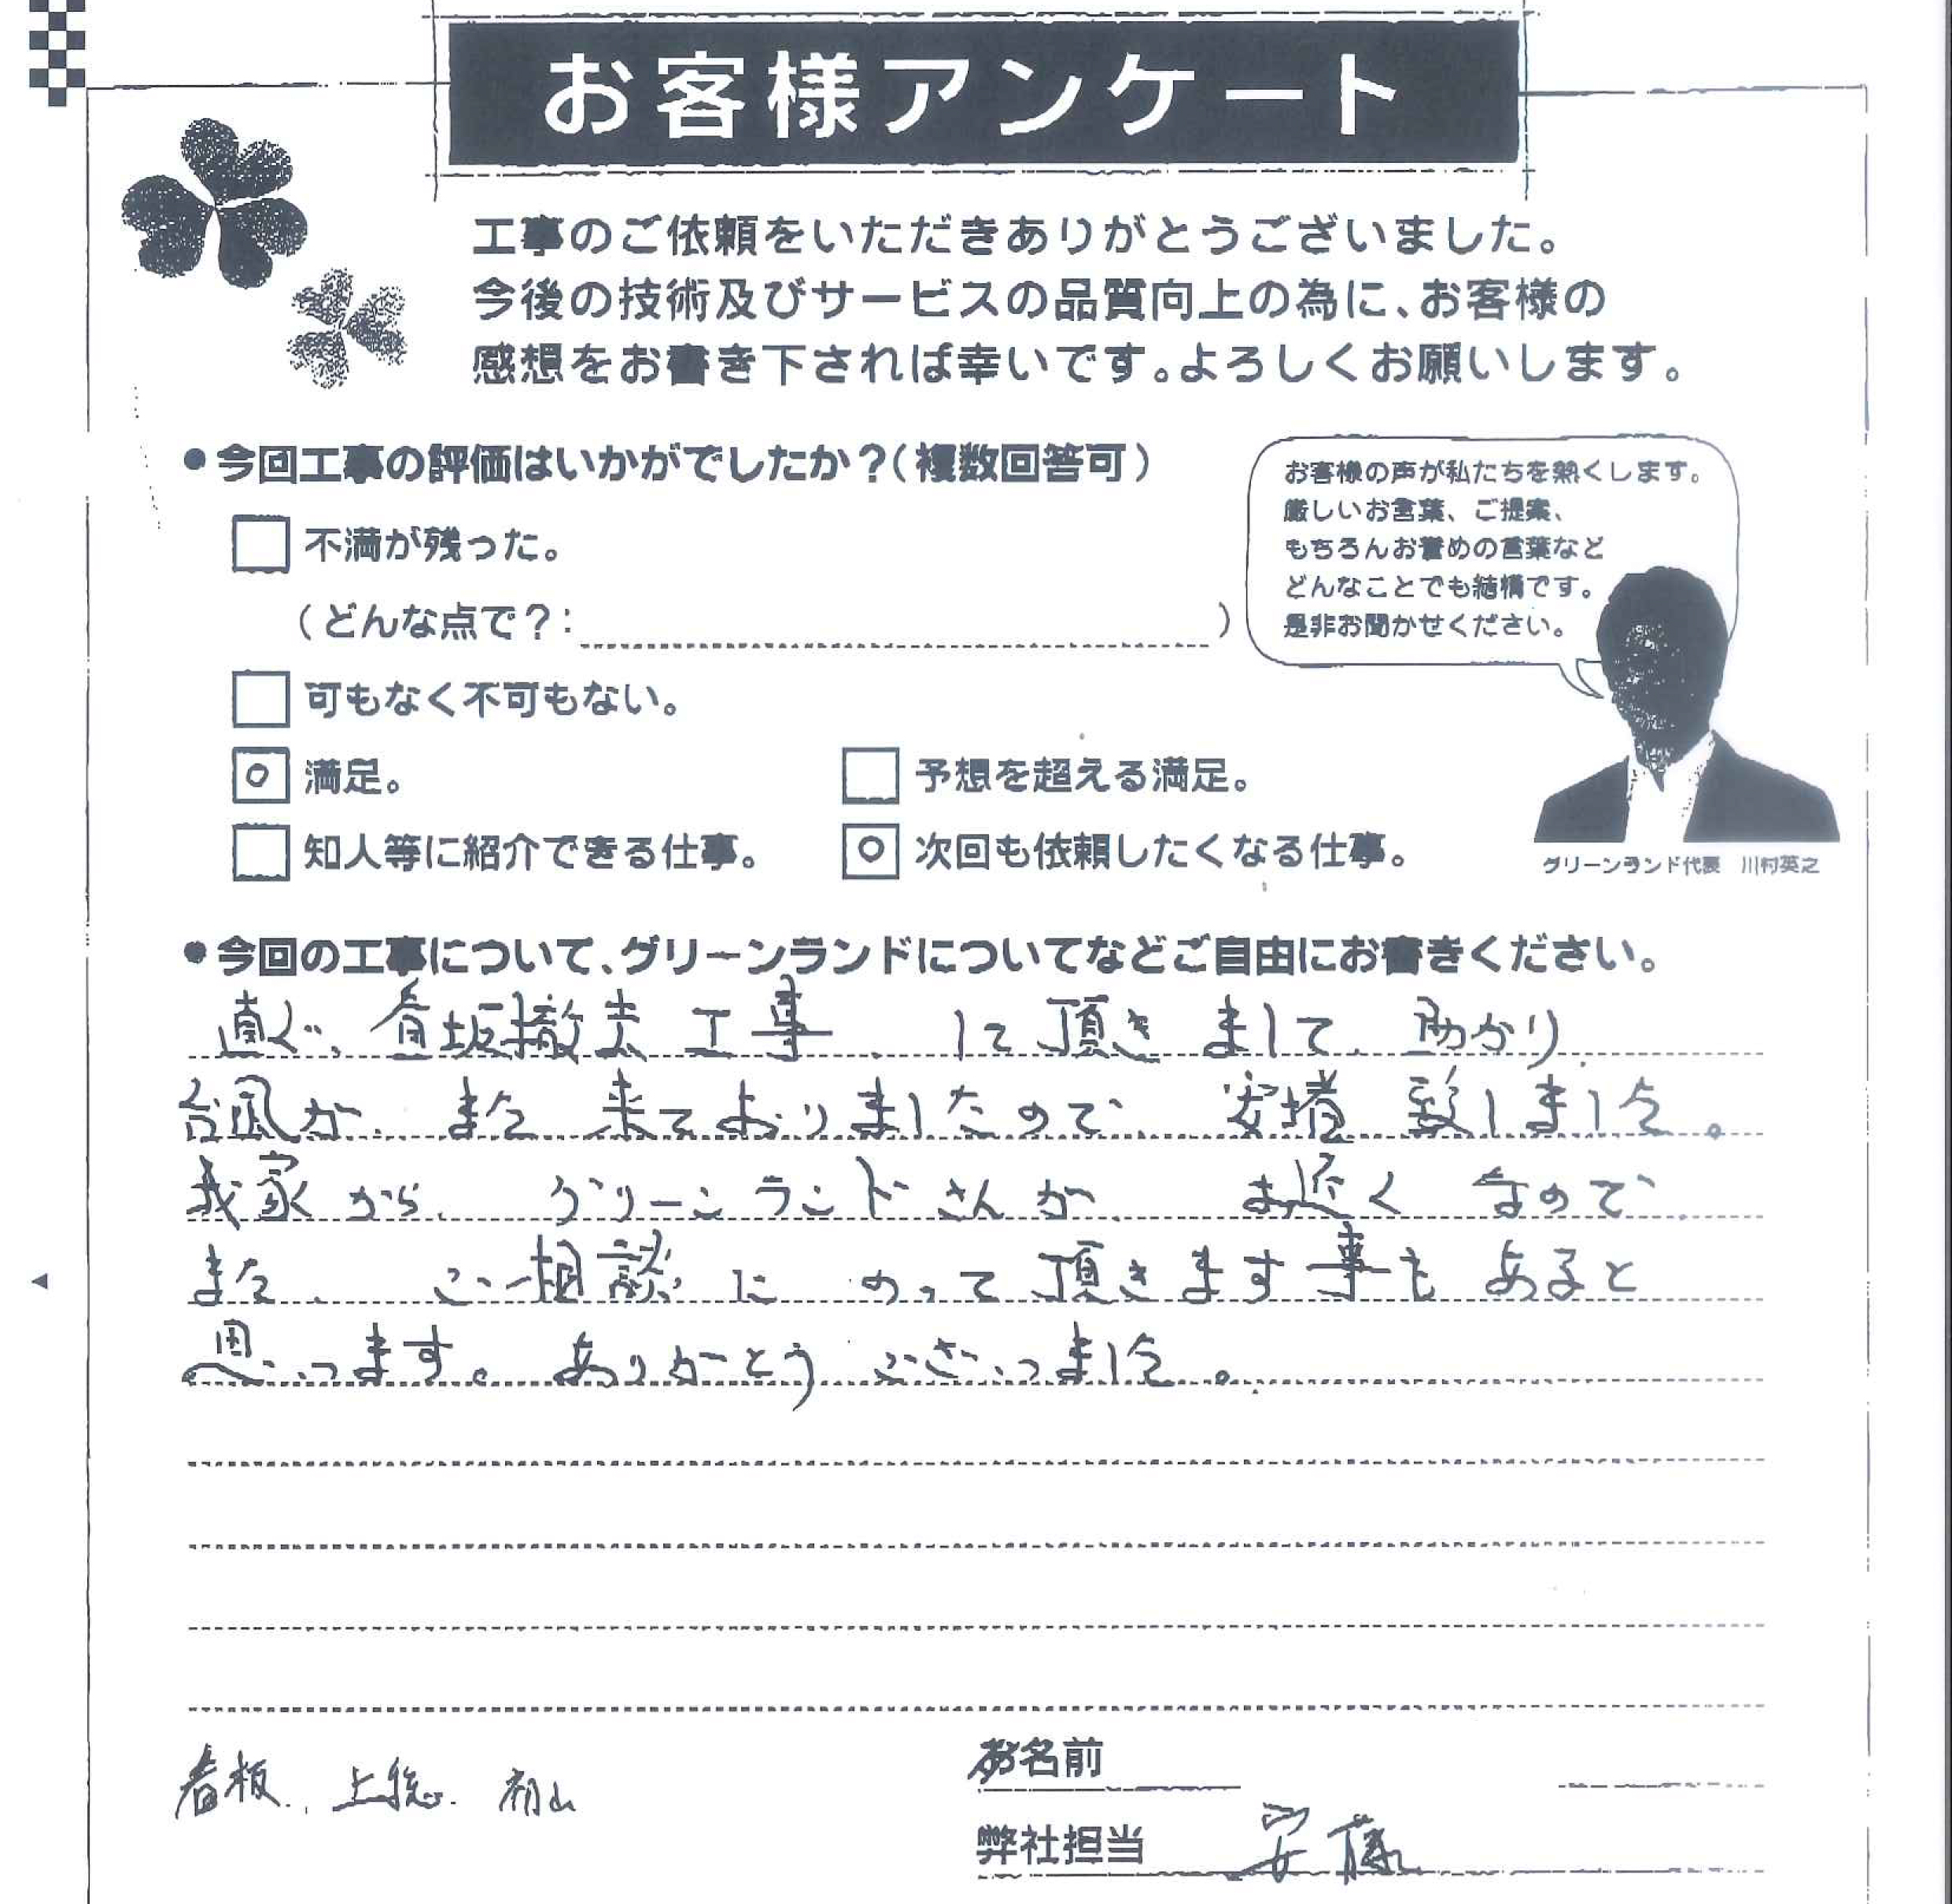 お客様アンケート
工事のご依頼をいただきありがとうございました。
今後の技術及びサービスの品質向上の為に、お客様の
感想をお書き下されば幸いです。よろしくお願いします。
●今回工事の評価はいかがでしたか?(複数回答可)
お客様の声が私たちを熱くします。
厳しいお言葉、ご提案、
もちろんお誉めの言葉など
どんなことでも結構です。
是非お聞かせください。
不満が残った。
(どんな点で?: )
可もなく不可もない。
満足。
予想を超える満足。
知人等に紹介できる仕事。
次回も依頼したくなる仕事。
グリーンランド代表 川村英之
●今回の工事について、グリーンランドについてなどご自由にお書きください。
直ぐ、看板撤去工事、して頂きまして、助かり、
台風が、また来ておりましたので、安堵致しました。
我家から、グリーンランドさんが、お近くなので、
また、ご相談にのって頂きます事もあると
思います。ありがとうございました。
お名前
看板、上総、
弊社担当 安藤